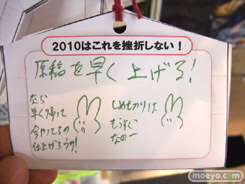 2010はこれを挫折しない!
原稿を早く上げる!
なな
早く帰って
今やってるの
仕上げろョ!
しめきりは
もうすぐ
なのー
moeyo.com